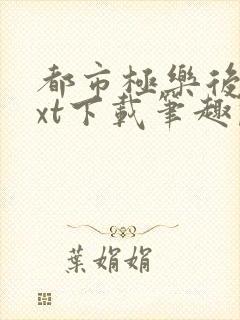 都市極樂後
xt下載筆趣
葉娟娟